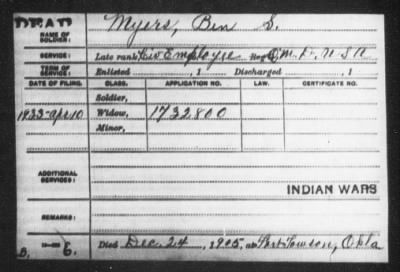 DEAD
NAME OF SOLDIER: Myers, Ben S.
SERVICE: Late rank Civ Employee Reg't Q.M.D. U S A
TERM OF SERVICE: Enlisted , 1 Discharged , 1
DATE OF FILING. CLASS. APPLICATION NO. LAW. CERTIFICATE NO.
Soldier,
1923-Apr 10 Widow, 1732800
Minor,
ADDITIONAL SERVICES:
INDIAN WARS
REMARKS:
Died Dec. 24, 1905, at Fort Towson, Okla